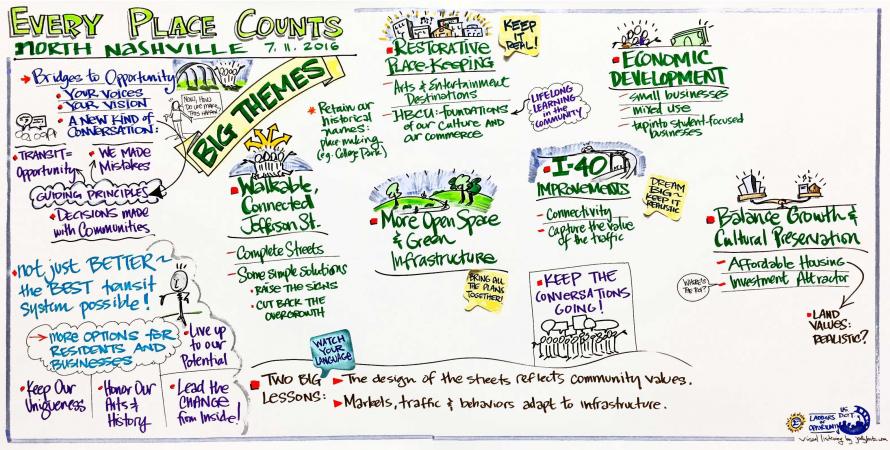 EVERY PLACE COUNTS
NORTH NASHVILLE 7.11.2016
Bridges to Opportunity
YOUR VOICES
YOUR VISION
A NEW KIND OF
CONVERSATION:
TRANSIT =
Opportunity
WE MADE
Mistakes
GUIDING PRINCIPLES
DECISIONS MADE
with COMMUNITIES
NOW, HOW
DO WE MAKE
THIS HAPPEN?
BIG THEMES
not just BETTER~
the BEST transit
system possible!
MORE OPTIONS FOR
RESIDENTS AND
BUSINESSES
Live up
to our
Potential
Keep Our
Uniqueness
Honor Our
Arts &
History
Lead the
CHANGE
from Inside!
Walkable,
Connected
Jefferson St.
Complete Streets
Some simple solutions
RAISE THE SIGNS
CUT BACK THE
OVERGROWTH
WATCH
YOUR
LANGUAGE
Retain our
historical
names:
place making
(eg: College Park)
RESTORATIVE
PLACE-KEEPING
KEEP
IT
REAL!
Arts & Entertainment
Destinations
HBCU: foundations
of our culture and
our commerce
LIFELONG
LEARNING
in the
COMMUNITY
More Open Space
& Green
Infrastructure
BRING ALL
THE PLANS
TOGETHER!
ECONOMIC
DEVELOPMENT
small businesses
mixed use
tap into student-focused
businesses
I-40
IMPROVEMENTS
Connectivity
Capture the value
of the traffic
DREAM
BIG~
KEEP IT
REALISTIC
KEEP THE
CONVERSATIONS
GOING!
Balance Growth &
Cultural Preservation
Affordable Housing
Investment Attractor
WHERE'S
THE
LAND
VALUES:
REALISTIC?
TWO BIG
LESSONS:
The design of the streets reflects community values.
Markets, traffic & behaviors adapt to infrastructure.
LADDERS
OF
OPPORTUNITY
US
DOT
visual listening by